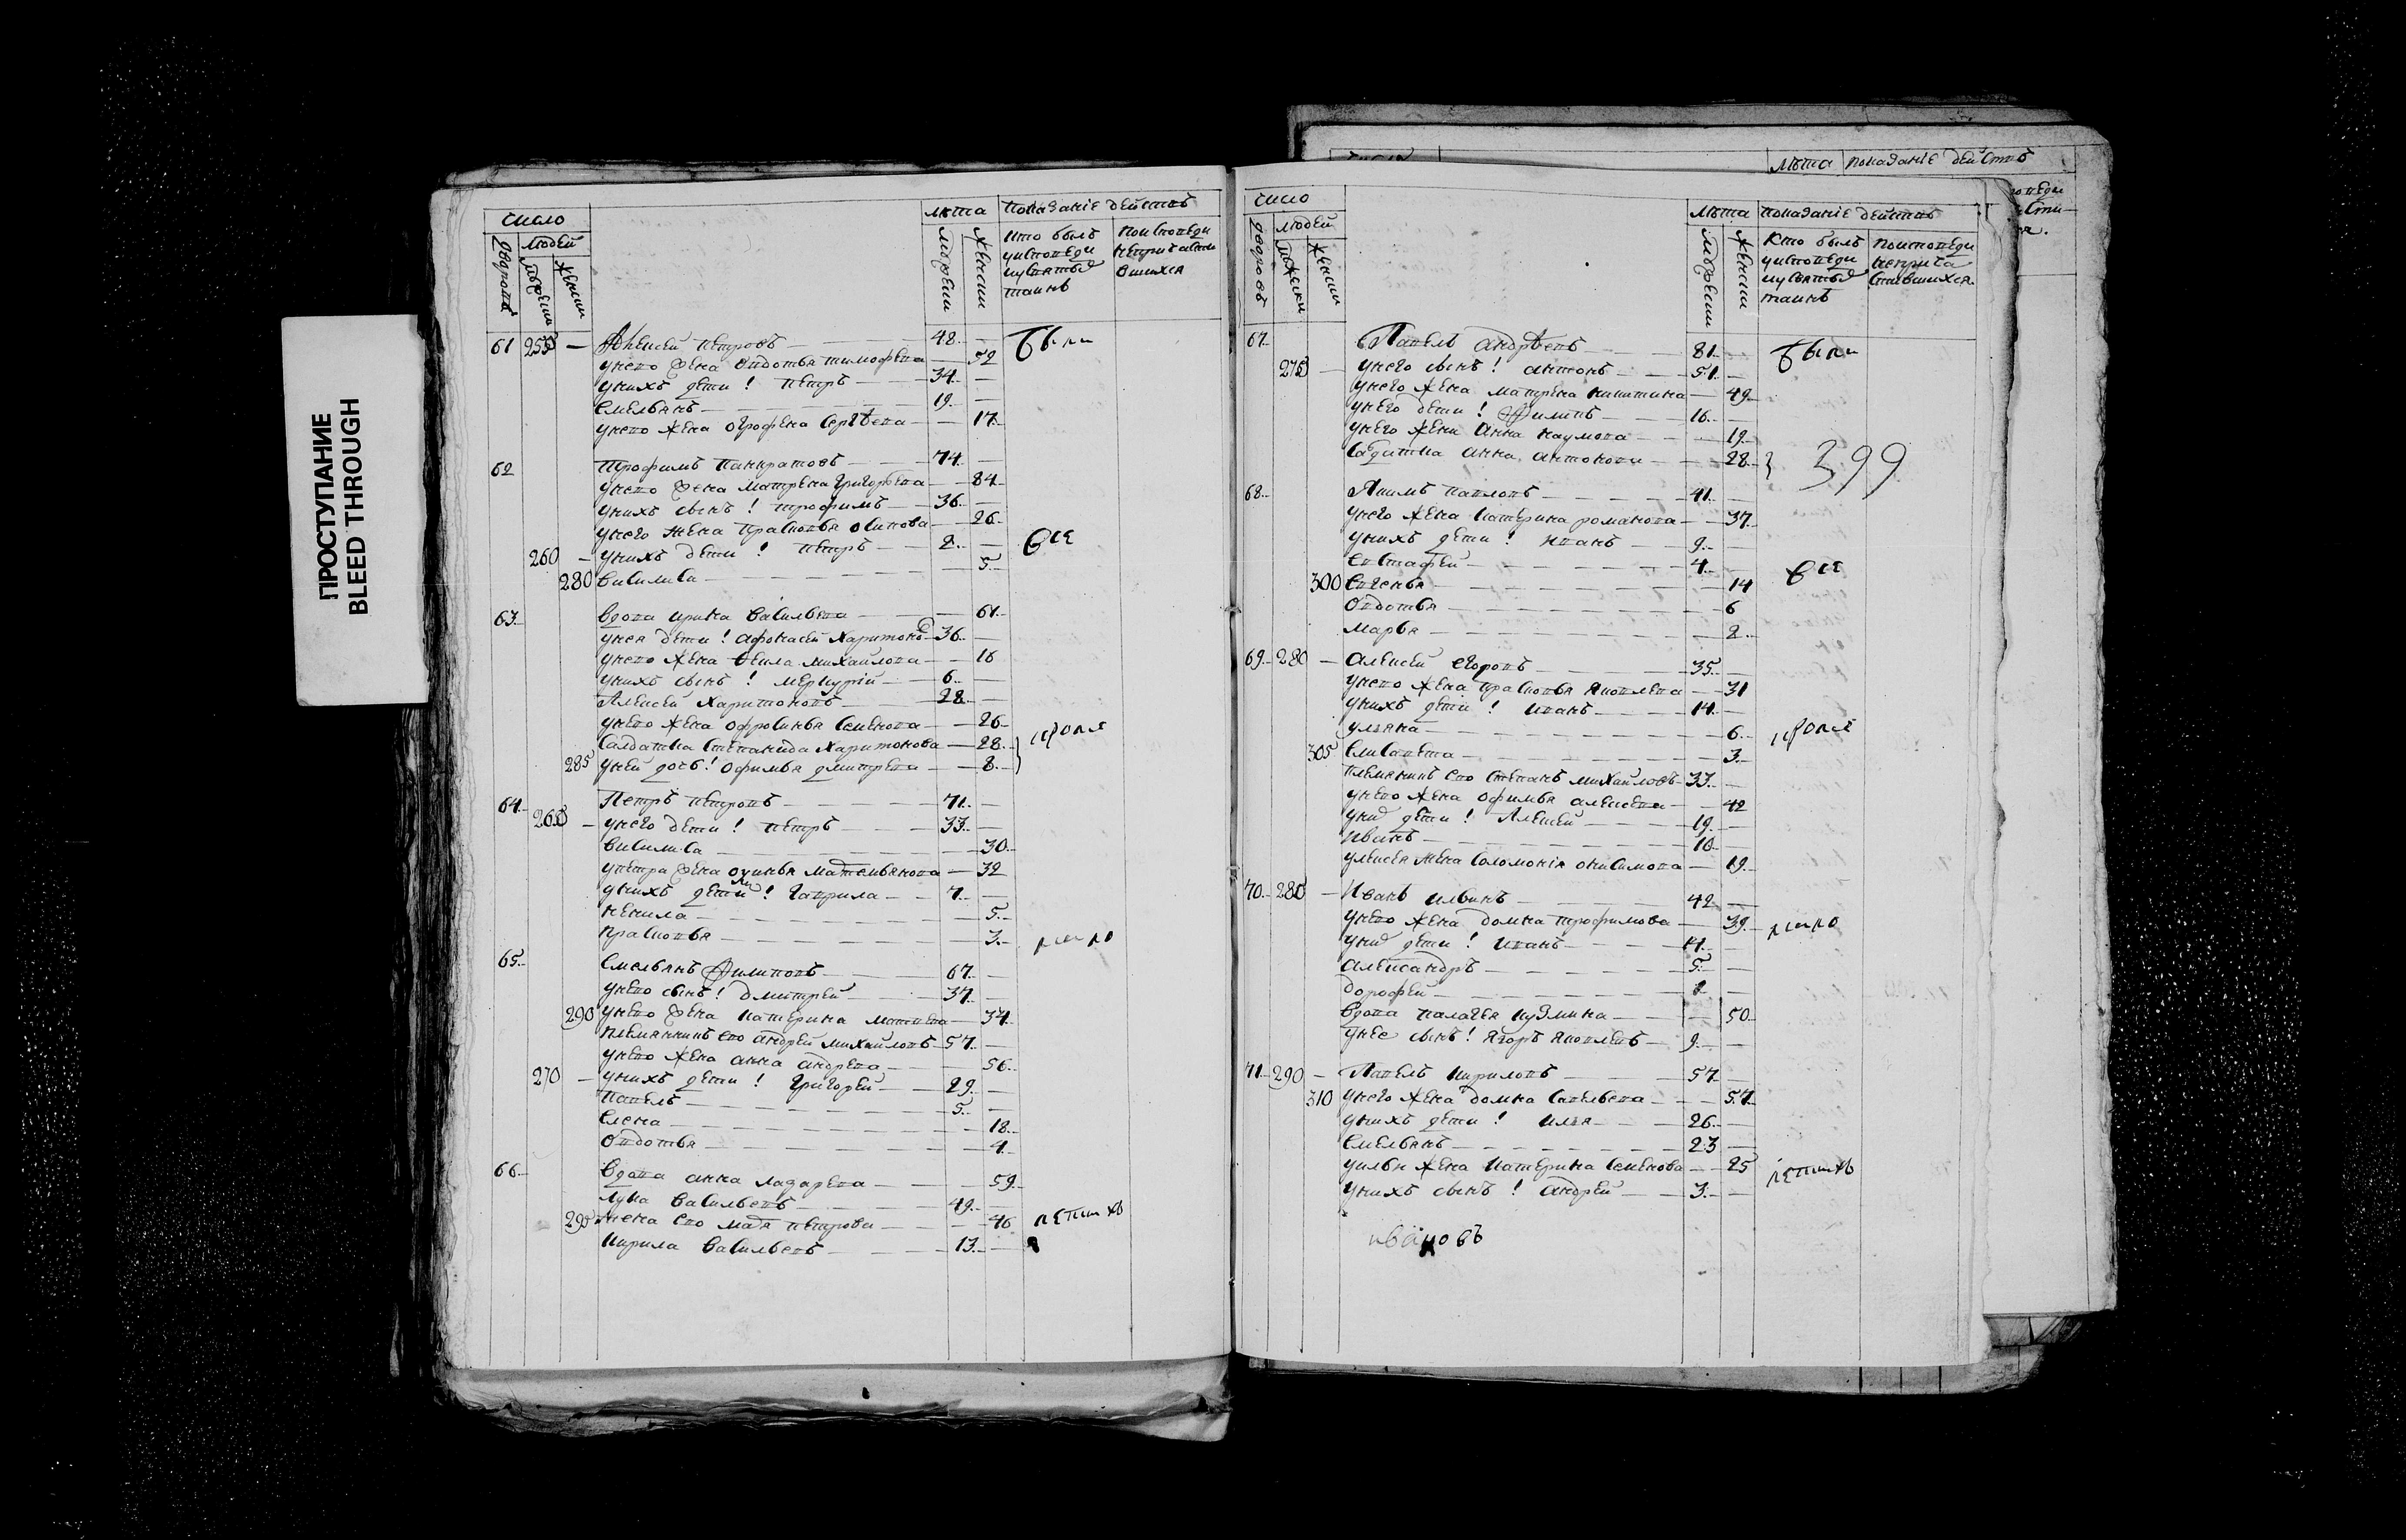 ПРОСТУПАНИЕ
BLEED THROUGH
число
людей
лѣта
показаніе действъ
дворовъ
мужески
женски
мужески
женски
кто былъ
уисповеди
иусвятыхъ
таинъ
поисповеди
непричасти
вшихся
61 255 — Алексей петровъ 48
унево жена овдотья тимофева 52
унихъ дети! петръ 34
Емельянъ 19
унево жена огрофена сергѣева 17
были
62 трофимъ панкратовъ 74
унево жена матрена григорьева 84
унихъ сынъ! трофимъ 36
унего жена прасковья осипова 26
260 — унихъ дети! петръ 2
280 василиса 5
все
63 вдова ирина васильева 61
унея дети! афонасей харитоновъ 36
унево жена михаилова 16
унихъ сынъ! меркурій 6
Алексей харитоновъ 28
унево жена офросинья семенова 26
салдатка степанида харитонова 28
285 уней дочь! офимья дмитрева 8
кроме
64 Петръ петровъ 71
265 — унего дети! петръ 33
василиса 30
упетра жена 32
унихъ дети! гаврила 7
ненила 5
прасковья 3
65 Емельянъ Филиповъ 67
унево сынъ! дмитрей 37
290 унево жена катерина матвева 34
племянникъ ево андрей михаиловъ 57
унево жена анна андрева 56
270 — унихъ дети! григорей 29
павелъ 5
елена 18
овдотья 4
66 вдова анна лазарева 59
лука васильевъ 49
295 жена ево петрова 46
кирила васильевъ 13
летнхъ
число
людей
лѣта
показаніе действъ
дворовъ
мужески
женски
мужески
женски
кто былъ
уисповеди
иусвятыхъ
таинъ
поисповеди
неприча
стившихся
67 Павелъ андрѣевъ 81
275 — унего сынъ! антонъ 51
унего жена матрена никитина 49
унего дети! Филипъ 16
унего жена анна наумова 19
салдатка анна антонова 28
были
399
68 Акимъ павловъ 41
унего жена катерина романова 37
унихъ дети! иванъ 9
евстафей 4
300 евгенья 14
овдотья 6
марья 2
все
69 280 — алексей егоровъ 35
унево жена прасковья яковлева 31
унихъ дети! иванъ 14
ульяна 6
305 елисавета 3
племяникъ ево степанъ михаиловъ 33
унево жена офимья алексева 42
унихъ дети! Алексей 19
иванъ 10
улексея жена соломонія онисимова 19
кроме
70 285 — Иванъ ильинъ 42
унево жена домна трофимова 39
унихъ дети! иванъ 14
александръ 5
дорофей 1
вдова палагея кузмина 50
унее сынъ! Ягоръ яковлевъ 9
71 290 — Павелъ кириловъ 57
310 унего жена домна савельева 57
унихъ дети! илья 26
емельянъ 23
уильи жена катерина семенова 25
унихъ сынъ! андрей 3
летнхъ
ивановъ
лѣта
показаніе действъ